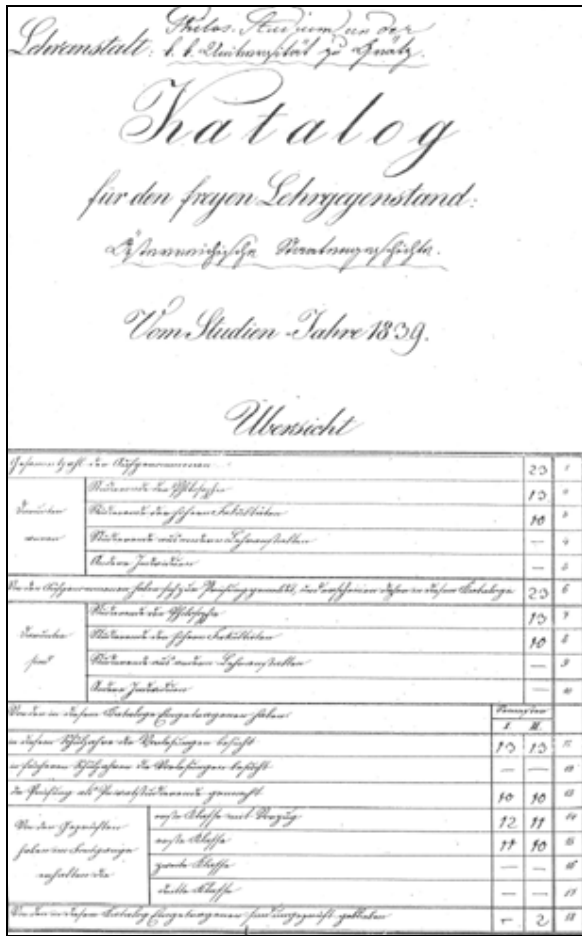 Philos. Studium an der
Lehranstalt: k. k. Universität zu Gratz.
Katalog
für den freyen Lehrgegenstand:
Österreichische Staatengeschichte.
Vom Studien-Jahre 1839.
Übersicht
Gesammtzahl der Aufgenommenen 23 1
Darunter waren
Studierende der Philosophie 13 2
Studierende der höhern Fakultäten 10 3
Studierende aus andern Lehranstalten — 4
Andere Individuen — 5
Von den Aufgenommenen haben sich zur Prüfung gemeldet, und erscheinen daher in diesem Kataloge 23 6
Darunter sind
Studierende der Philosophie 13 7
Studierende der höhern Fakultäten 10 8
Studierende aus andern Lehranstalten — 9
Andere Individuen — 10
Von den in diesem Kataloge Eingetragenen haben: Semester
I. II.
in diesem Schuljahre die Vorlesungen besucht 13 13 11
in früheren Schuljahren die Vorlesungen besucht — — 12
die Prüfung als Privatstudierende gemacht 10 10 13
Von den Geprüften haben im Fortgange erhalten die
erste Klasse mit Vorzug 12 11 14
erste Klasse 11 10 15
zweite Klasse — — 16
dritte Klasse — — 17
Von den in diesem Katalog Eingetragenen sind ungeprüft geblieben — 2 18